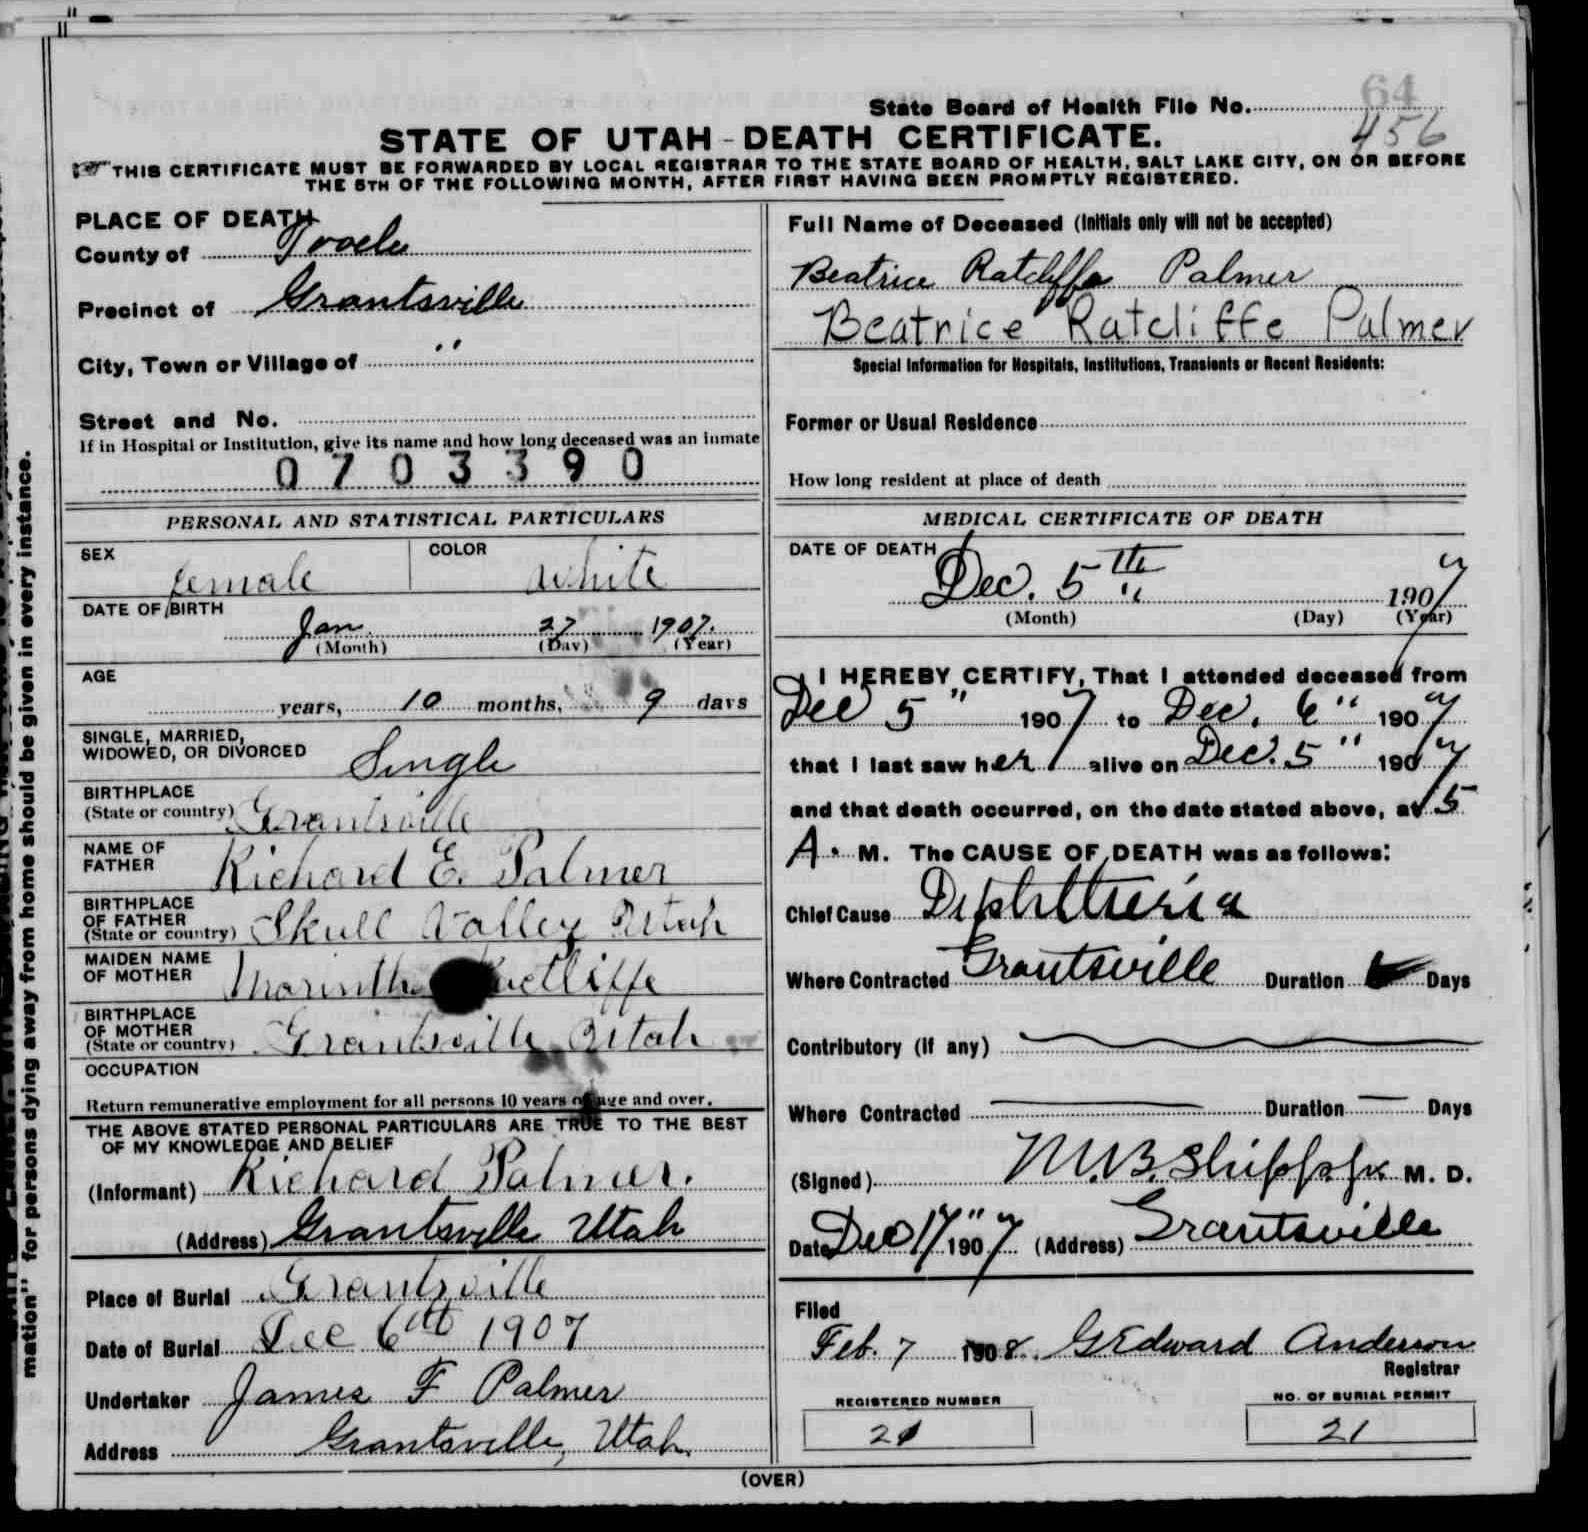 64
State Board of Health File No. 456
STATE OF UTAH - DEATH CERTIFICATE.
THIS CERTIFICATE MUST BE FORWARDED BY LOCAL REGISTRAR TO THE STATE BOARD OF HEALTH, SALT LAKE CITY, ON OR BEFORE
THE 5TH OF THE FOLLOWING MONTH, AFTER FIRST HAVING BEEN PROMPTLY REGISTERED.
PLACE OF DEATH
County of Tooele
Precinct of Grantsville
City, Town or Village of "
Street and No.
If in Hospital or Institution, give its name and how long deceased was an inmate
0703390
PERSONAL AND STATISTICAL PARTICULARS
SEX female COLOR White
DATE OF BIRTH
Jan. 27 1907.
(Month) (Day) (Year)
AGE
years, 10 months, 9 days
SINGLE, MARRIED,
WIDOWED, OR DIVORCED Single
BIRTHPLACE
(State or country) Grantsville
NAME OF
FATHER Richard E. Palmer
BIRTHPLACE
OF FATHER
(State or country) Skull Valley Utah
MAIDEN NAME
OF MOTHER
BIRTHPLACE
OF MOTHER
(State or country) Grantsville Utah
OCCUPATION
Return remunerative employment for all persons 10 years of age and over.
THE ABOVE STATED PERSONAL PARTICULARS ARE TRUE TO THE BEST
OF MY KNOWLEDGE AND BELIEF
(Informant) Richard Palmer.
(Address) Grantsville Utah
Place of Burial Grantsville
Date of Burial Dec 6th 1907
Undertaker James F Palmer
Address Grantsville, Utah.
Full Name of Deceased (Initials only will not be accepted)
Beatrice Ratcliffe Palmer
Beatrice Ratcliffe Palmer
Special Information for Hospitals, Institutions, Transients or Recent Residents:
Former or Usual Residence
How long resident at place of death
MEDICAL CERTIFICATE OF DEATH
DATE OF DEATH
Dec. 5th 1907
(Month) (Day) (Year)
I HEREBY CERTIFY, That I attended deceased from
Dec 5" 1907 to Dec. 6" 1907
that I last saw her alive on Dec. 5" 1907
and that death occurred, on the date stated above, at 5
A. M. The CAUSE OF DEATH was as follows:
Chief Cause Diphtheria
Where Contracted Grantsville Duration Days
Contributory (if any)
Where Contracted Duration Days
(Signed) M. D.
Date Dec 17" 1907 (Address) Grantsville
Filed
Feb. 7 1908. G Edward Anderson
Registrar
REGISTERED NUMBER
21
NO. OF BURIAL PERMIT
21
(OVER)
mation" for persons dying away from home should be given in every instance.